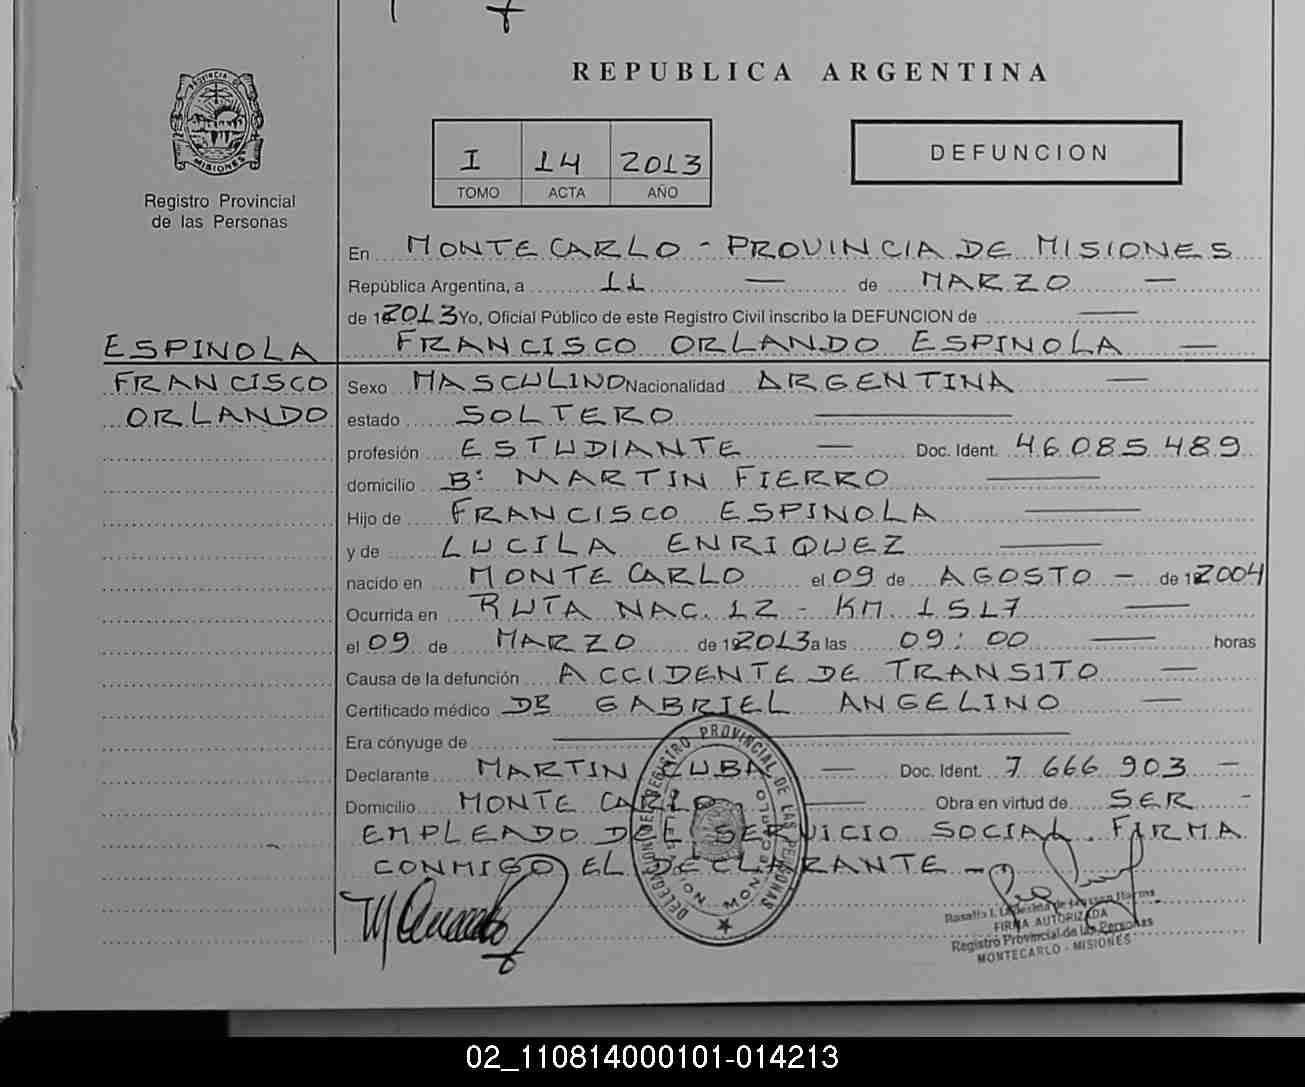 REPUBLICA ARGENTINA
PROVINCIA DE
MISIONES
Registro Provincial
de las Personas
I 14 2013
TOMO ACTA AÑO
DEFUNCION
En MONTECARLO - PROVINCIA DE MISIONES
República Argentina, a 11 — de MARZO —
de 2013 Yo, Oficial Público de este Registro Civil inscribo la DEFUNCION de —
ESPINOLA
FRANCISCO
ORLANDO
FRANCISCO ORLANDO ESPINOLA —
Sexo MASCULINO Nacionalidad ARGENTINA —
estado SOLTERO —
profesión ESTUDIANTE — Doc. Ident. 46.085.489
domicilio Bº MARTIN FIERRO —
Hijo de FRANCISCO ESPINOLA —
y de LUCILA ENRIQUEZ —
nacido en MONTECARLO el 09 de AGOSTO - de 2004
Ocurrida en RUTA NAC. 12 - KM. 1517 —
el 09 de MARZO de 2013 a las 09:00 — horas
Causa de la defunción ACCIDENTE DE TRANSITO —
Certificado médico DE GABRIEL ANGELINO —
Era cónyuge de —
Declarante MARTIN CUBA — Doc. Ident. 7 666 903 -
Domicilio MONTE CARLO — Obra en virtud de SER -
EMPLEADO DEL SERVICIO SOCIAL. FIRMA
CONMIGO EL DECLARANTE -
DELEGACION DEL REGISTRO PROVINCIAL DE LAS PERSONAS
MONTECARLO
MISIONES
Rosalia I.
FIRMA AUTORIZADA
Registro Provincial de las Personas
MONTECARLO - MISIONES
02_110814000101-014213